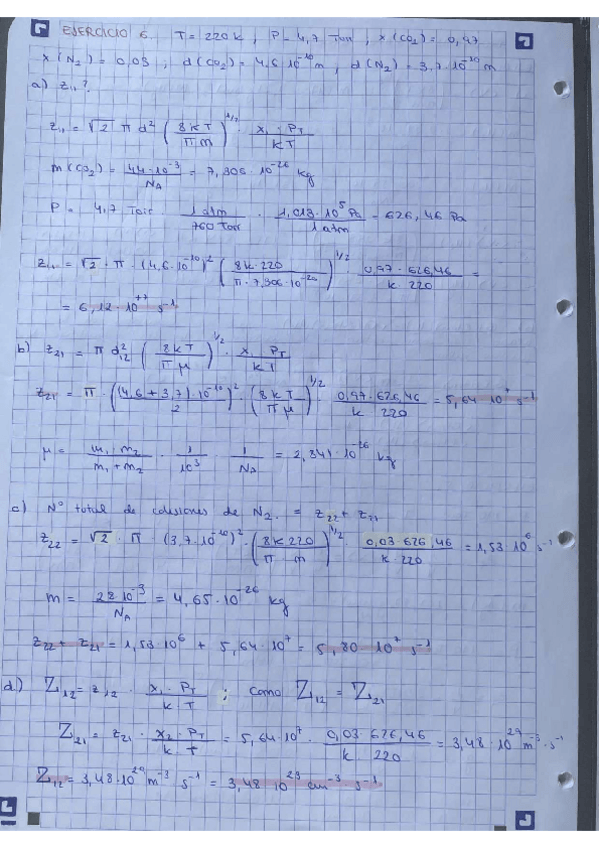 EJERCICIO 6. T = 220 K, P = 4,7 Torr, x(CO₂) = 0,97
x(N₂) = 0,03, d(CO₂) = 4,6·10⁻¹⁰ m, d(N₂) = 3,7·10⁻¹⁰ m
a) z₁₁?
z₁₁ = √2 π d² (8kT / πm)^1/2 · x₁·P_T / kT
m(CO₂) = 44·10⁻³ / N_A = 7,306·10⁻²⁶ kg
P = 4,7 Torr · 1 atm / 760 Torr · 1,013·10⁵ Pa / 1 atm = 626,46 Pa
z₁₁ = √2 · π · (4,6·10⁻¹⁰)² (8k·220 / π·7,306·10⁻²⁶)^1/2 · 0,97·626,46 / k·220 =
= 6,12·10⁺⁷ s⁻¹
b) z₂₁ = π d₁₂² (8kT / πμ)^1/2 · x₁ P_T / kT
z₂₁ = π · ((4,6 + 3,7)·10⁻¹⁰ / 2)² · (8kT / πμ)^1/2 · 0,97·626,46 / k 220 = 5,64·10⁷ s⁻¹
μ = m₁·m₂ / m₁+m₂ · 1 / 10³ · 1 / N_A = 2,841·10⁻²⁶ kg
c) Nº total de colisiones de N₂. = z₂₂ + z₂₁
z₂₂ = √2 · π · (3,7·10⁻¹⁰)² · (8k 220 / π m)^1/2 · 0,03·626,46 / k·220 = 1,53·10⁶ s⁻¹
m = 28·10⁻³ / N_A = 4,65·10⁻²⁶ kg
z₂₂ + z₂₁ = 1,53·10⁶ + 5,64·10⁷ = 5,80·10⁷ s⁻¹
d) Z₁₂ = z₁₂ · x₁·P_T / k T ; como Z₁₂ = Z₂₁
Z₂₁ = z₂₁ · x₂·P_T / k·T = 5,64·10⁷ · 0,03·626,46 / k·220 = 3,48·10²⁹ m⁻³·s⁻¹
Z₁₂ = 3,48·10²⁹ m⁻³ s⁻¹ = 3,48·10²³ cm⁻³·s⁻¹